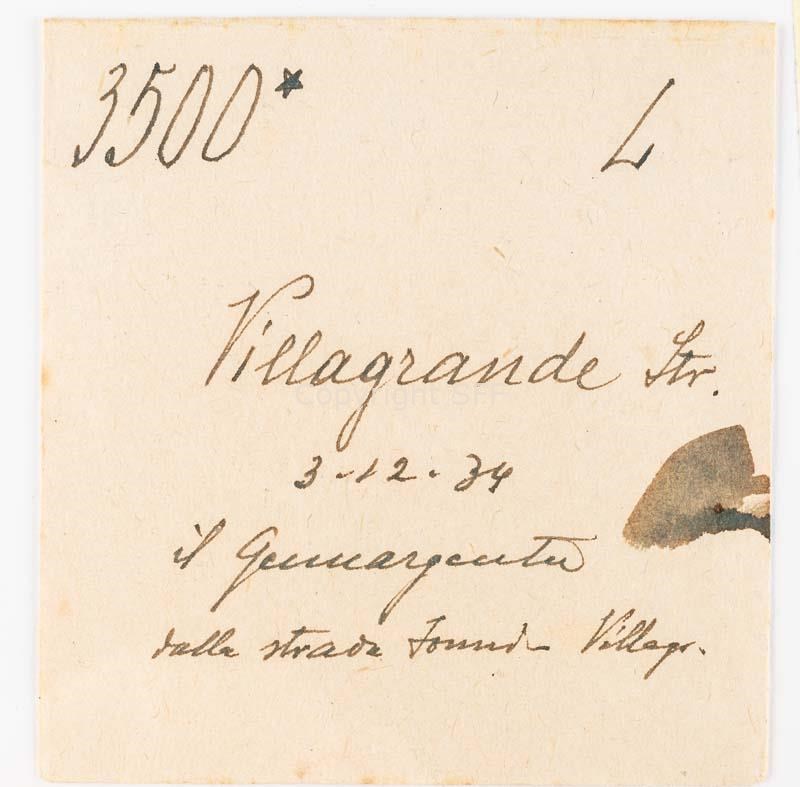 3500* L
Villagrande Str.
Copyright SFF
3-12.34
il Gennargentu
dalla strada Fonni - Villagr.